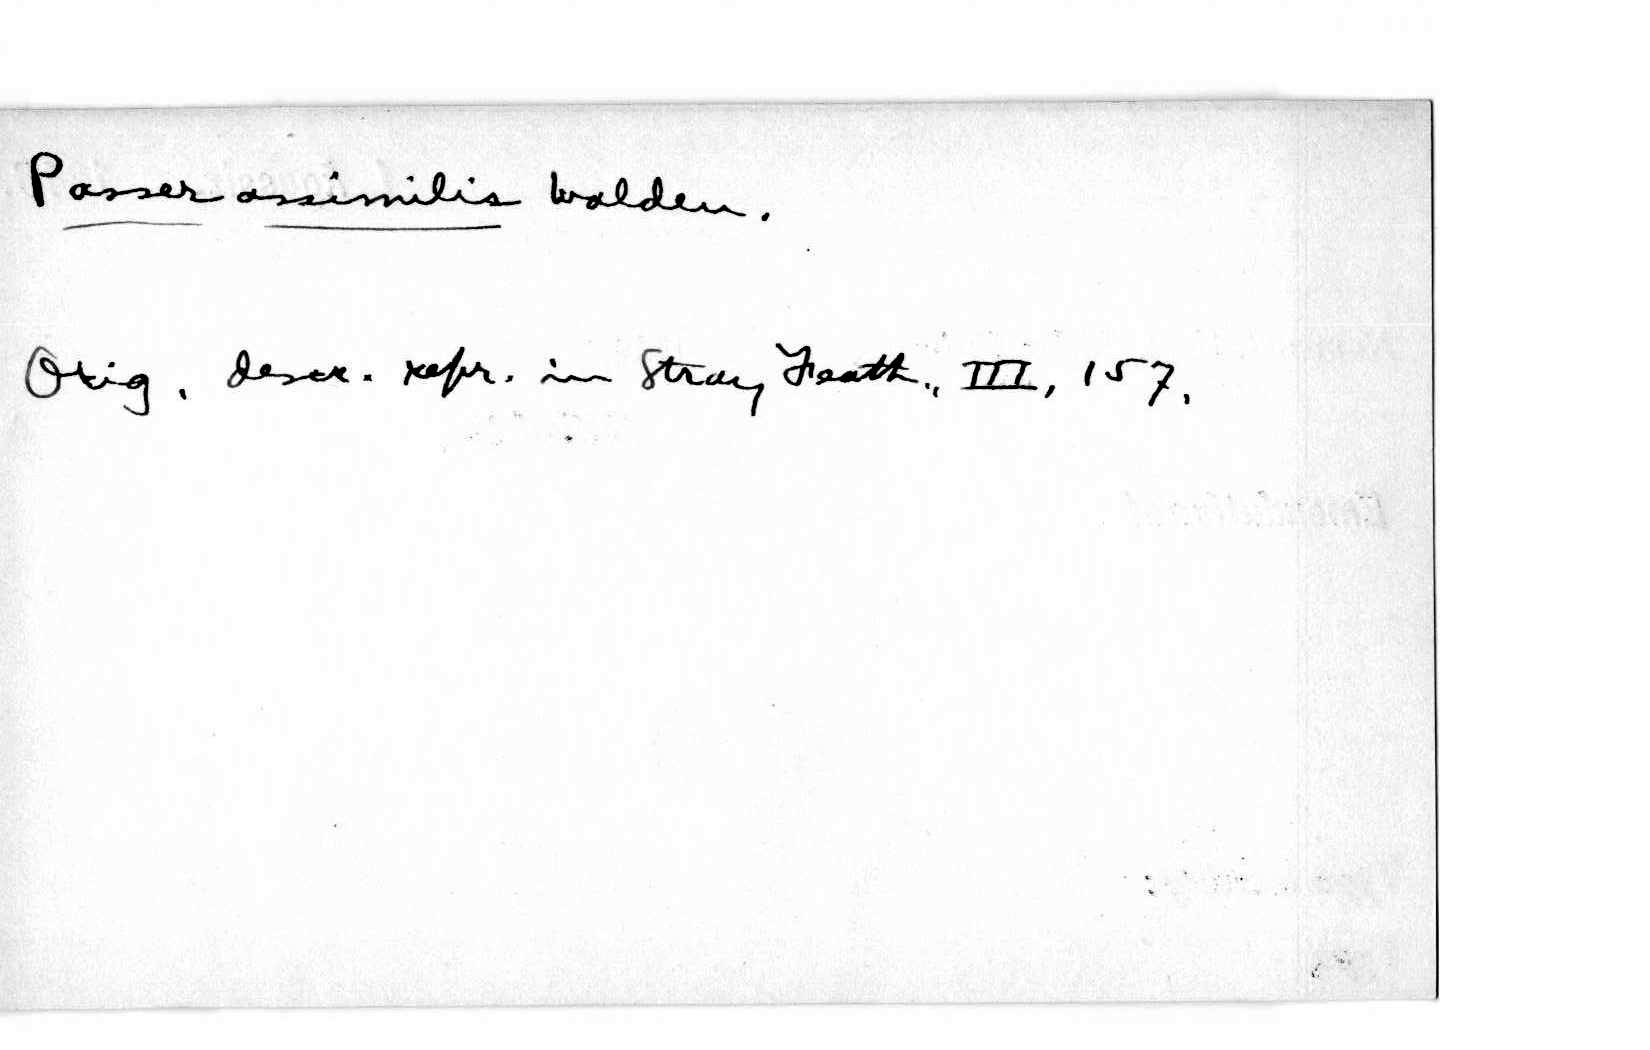 Passer assimilis Walden.
Orig. descr. repr. in Stray Feath., III, 157.